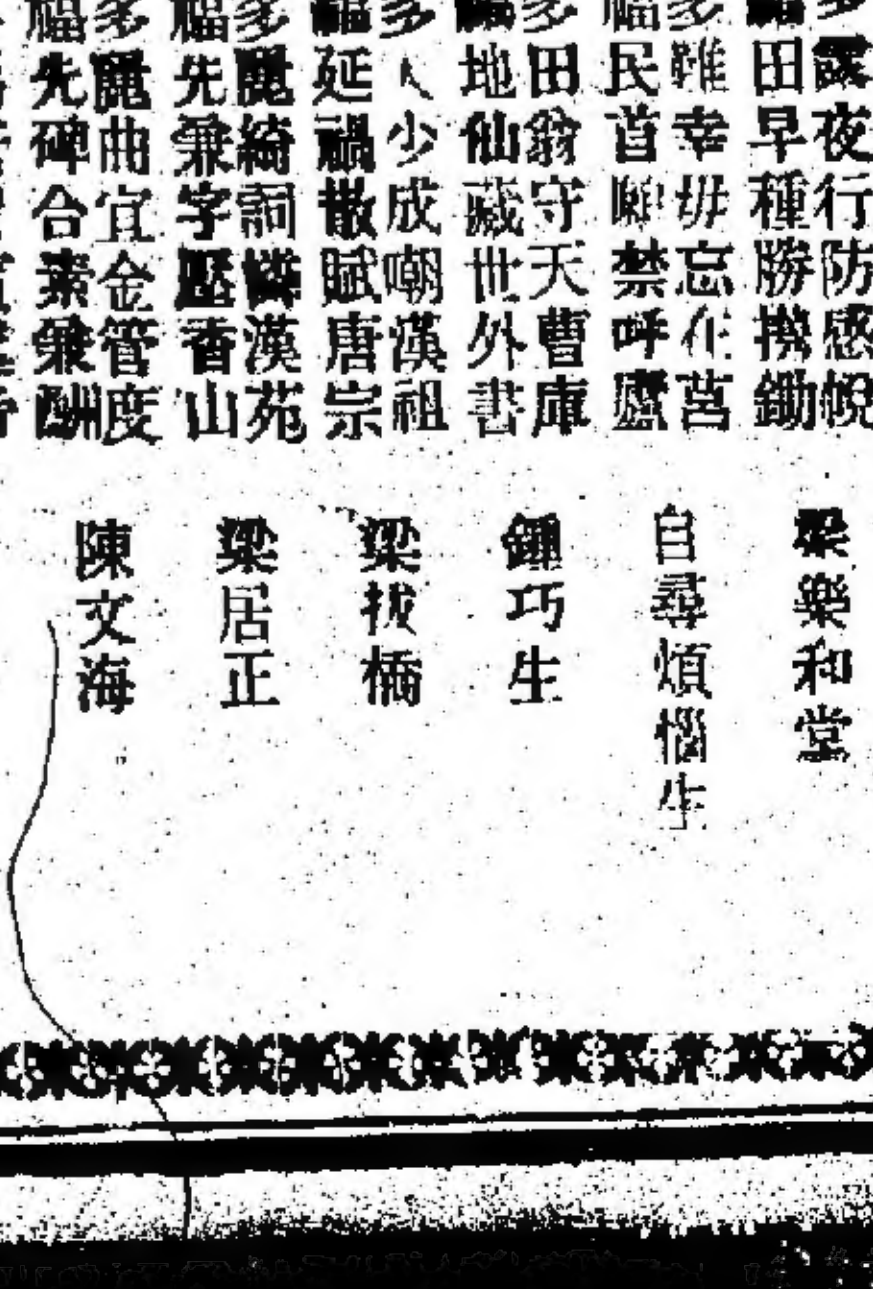 多露夜行防感帨
福田早種勝携鋤
梁樂和堂
多難幸毋忘在莒
福民首願禁呼盧
自尋煩惱生
多田翁守天曹庫
福地仙藏世外書
鍾巧生
多人少成嘲漢祖
福延禍散賦唐宗
梁拔橋
多麗綺詞憐漢苑
福先兼字壓香山
梁居正
多麗曲宜金管度
福先碑合素縑酬
陳文海